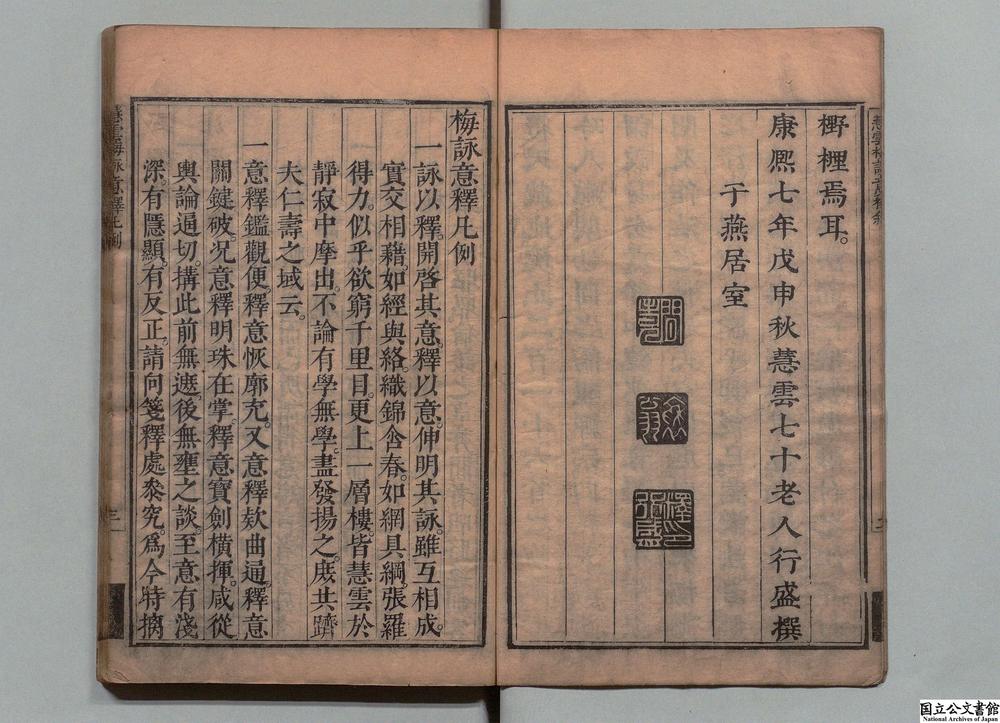 樗樫焉耳。
康熙七年戊申秋慧雲七十老人行盛撰
于燕居室
梅詠意釋凡例
一詠以釋。開啓其意。釋以意。伸明其詠。雖互相成。
實交相藉如經與絡。織錦含春。如網具綱。張羅
得力。似乎欲窮千里目。更上一層樓。皆慧雲於
靜寂中摩出。不論有學無學。盡發揚之。庻共躋
夫仁壽之域云。
一意釋鑑觀便。釋意恢廓充。又意釋欵曲通。釋意
關鍵破。况意釋明珠在掌。釋意寶劍橫揮。咸從
輿論逼切。搆此前無遮。後無壅之談。至意有淺
深。有隱顯。有反正。請向箋釋處叅究。爲今特摛
慧雲梅詠意釋凡例
三
国立公文書館
National Archives of Japan